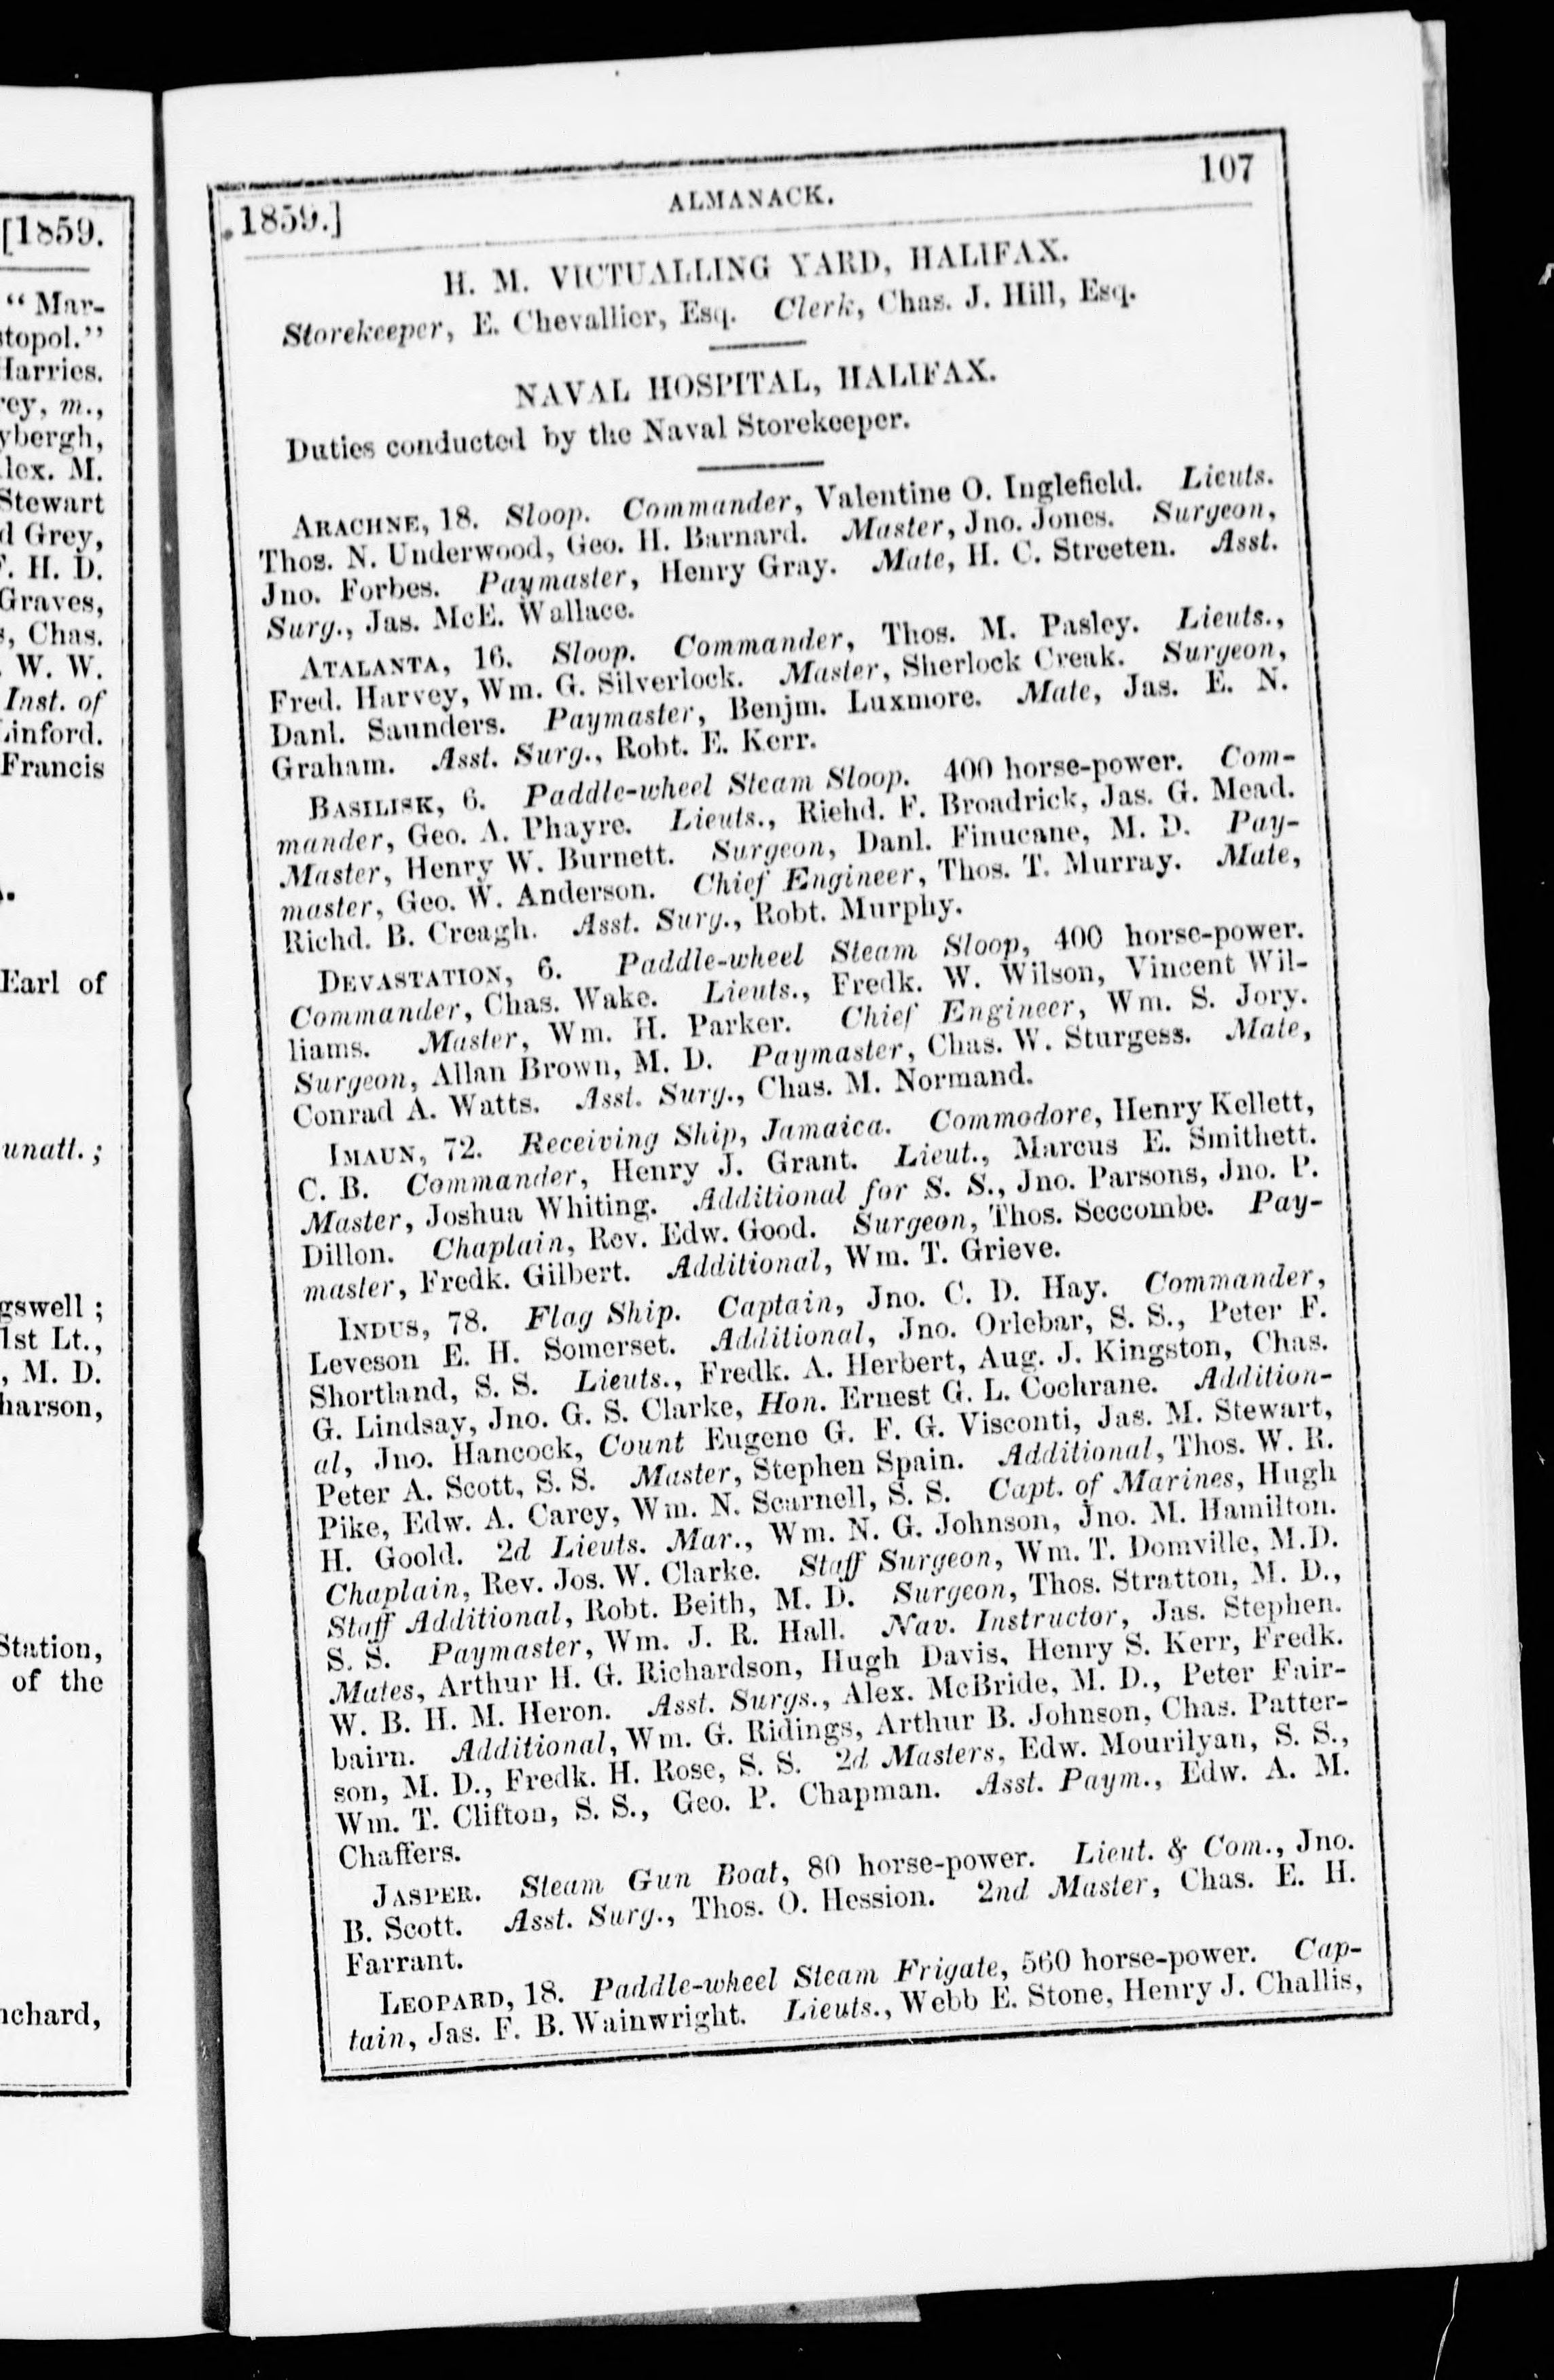 [1859.
"Mar-
topol."
Harries.
m.,
lex. M.
Stewart
d Grey,
F. H. D.
Graves,
Chas.
W. W.
Inst. of
Francis
Earl of
unatt.;
1st Lt.,
M. D.
Station,
of the
1859.] ALMANACK. 107
H. M. VICTUALLING YARD, HALIFAX.
Storekeeper, E. Chevallier, Esq. Clerk, Chas. J. Hill, Esq.
NAVAL HOSPITAL, HALIFAX.
Duties conducted by the Naval Storekeeper.
ARACHNE, 18. Sloop. Commander, Valentine O. Inglefield. Lieuts.
Thos. N. Underwood, Geo. H. Barnard. Master, Jno. Jones. Surgeon,
Jno. Forbes. Paymaster, Henry Gray. Mate, H. C. Streeten. Asst.
Surg., Jas. McE. Wallace.
ATALANTA, 16. Sloop. Commander, Thos. M. Pasley. Lieuts.,
Fred. Harvey, Wm. G. Silverlock. Master, Sherlock Creak. Surgeon,
Danl. Saunders. Paymaster, Benjm. Luxmore. Mate, Jas. E. N.
Graham. Asst. Surg., Robt. E. Kerr.
BASILISK, 6. Paddle-wheel Steam Sloop. 400 horse-power. Com-
mander, Geo. A. Phayre. Lieuts., Richd. F. Broadrick, Jas. G. Mead.
Master, Henry W. Burnett. Surgeon, Danl. Finucane, M. D. Pay-
master, Geo. W. Anderson. Chief Engineer, Thos. T. Murray. Mate,
Richd. B. Creagh. Asst. Surg., Robt. Murphy.
DEVASTATION, 6. Paddle-wheel Steam Sloop, 400 horse-power.
Commander, Chas. Wake. Lieuts., Fredk. W. Wilson, Vincent Wil-
liams. Master, Wm. H. Parker. Chief Engineer, Wm. S. Jory.
Surgeon, Allan Brown, M. D. Paymaster, Chas. W. Sturgess. Mate,
Conrad A. Watts. Asst. Surg., Chas. M. Normand.
IMAUN, 72. Receiving Ship, Jamaica. Commodore, Henry Kellett,
C. B. Commander, Henry J. Grant. Lieut., Marcus E. Smithett.
Master, Joshua Whiting. Additional for S. S., Jno. Parsons, Jno. P.
Dillon. Chaplain, Rev. Edw. Good. Surgeon, Thos. Seccombe. Pay-
master, Fredk. Gilbert. Additional, Wm. T. Grieve.
INDUS, 78. Flag Ship. Captain, Jno. C. D. Hay. Commander,
Leveson E. H. Somerset. Additional, Jno. Orlebar, S. S., Peter F.
Shortland, S. S. Lieuts., Fredk. A. Herbert, Aug. J. Kingston, Chas.
G. Lindsay, Jno. G. S. Clarke, Hon. Ernest G. L. Cochrane. Addition-
al, Jno. Hancock, Count Eugene G. F. G. Visconti, Jas. M. Stewart,
Peter A. Scott, S. S. Master, Stephen Spain. Additional, Thos. W. R.
Pike, Edw. A. Carey, Wm. N. Scarnell, S. S. Capt. of Marines, Hugh
H. Goold. 2d Lieuts. Mar., Wm. N. G. Johnson, Jno. M. Hamilton.
Chaplain, Rev. Jos. W. Clarke. Staff Surgeon, Wm. T. Domville, M.D.
Staff Additional, Robt. Beith, M. D. Surgeon, Thos. Stratton, M. D.,
S. S. Paymaster, Wm. J. R. Hall. Nav. Instructor, Jas. Stephen.
Mates, Arthur H. G. Richardson, Hugh Davis, Henry S. Kerr, Fredk.
W. B. H. M. Heron. Asst. Surgs., Alex. McBride, M. D., Peter Fair-
bairn. Additional, Wm. G. Ridings, Arthur B. Johnson, Chas. Patter-
son, M. D., Fredk. H. Rose, S. S. 2d Masters, Edw. Mourilyan, S. S.,
Wm. T. Clifton, S. S., Geo. P. Chapman. Asst. Paym., Edw. A. M.
Chaffers.
JASPER. Steam Gun Boat, 80 horse-power. Lieut. & Com., Jno.
B. Scott. Asst. Surg., Thos. O. Hession. 2nd Master, Chas. E. H.
Farrant.
LEOPARD, 18. Paddle-wheel Steam Frigate, 560 horse-power. Cap-
tain, Jas. F. B. Wainwright. Lieuts., Webb E. Stone, Henry J. Challis,